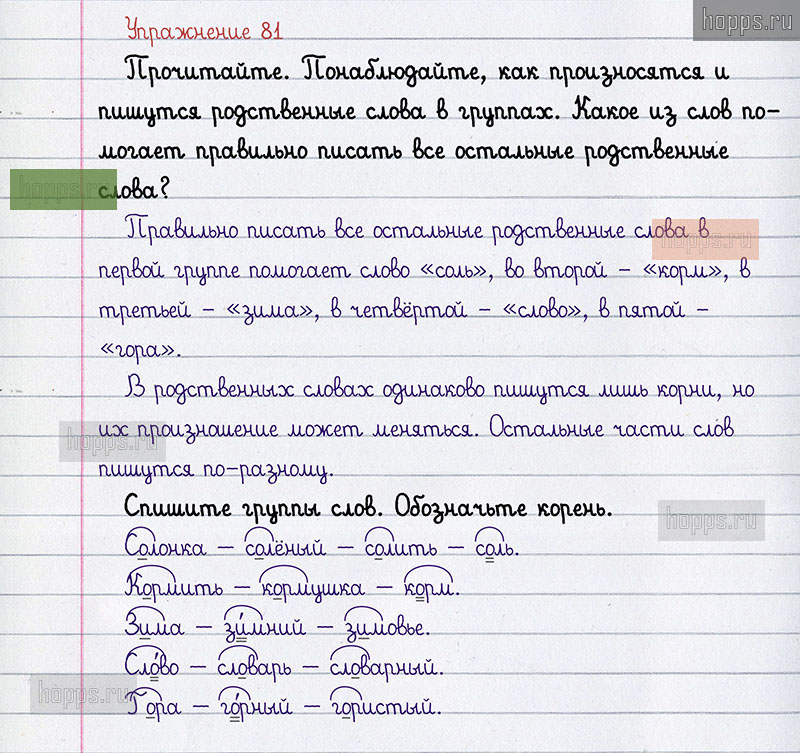 hopps.ru
Упражнение 81
Прочитайте. Понаблюдайте, как произносятся и
пишутся родственные слова в группах. Какое из слов по-
могает правильно писать все остальные родственные
слова?
hopps.ru
Правильно писать все остальные родственные слова в
hopps.ru
первой группе помогает слово «соль», во второй – «корм», в
третьей – «зима», в четвёртой – «слово», в пятой –
«гора».
В родственных словах одинаково пишутся лишь корни, но
их произношение может меняться. Остальные части слов
hopps.ru
пишутся по-разному.
Спишите группы слов. Обозначьте корень.
hopps.ru
Солонка – солёный – солить – соль.
Кормить – кормушка – корм.
Зима – зи́мний – зимовье.
Сло́во – словарь – словарный.
Гора – го́рный – гористый.
hopps.ru